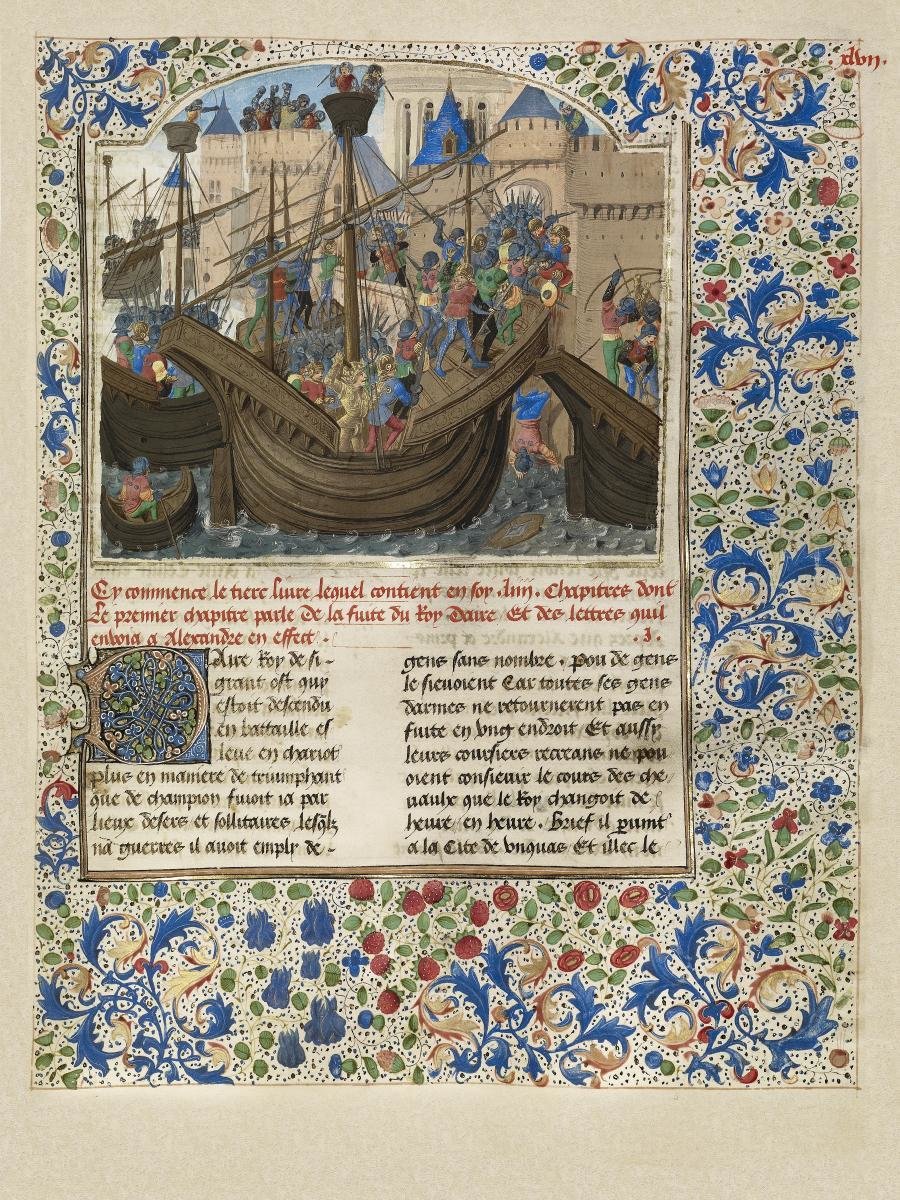 xlvii.
Cy commence le tiers liure lequel contient en soy .iiii. Chapitres dont
Le premier chapitre parle de la fuite du Roy Daire Et des lettres quil
enuoia a Alexandre en effect . .I.
Daire Roy de si
grant ost quy
estoit descendu
en battaille es
leue en chariot
plus en maniere de triumphant
que de champion fuioit ia par
lieux desers et sollitaires lesqlz
na guerres il auoit emply de
gens sans nombre . Pou de gens
le sieuoient Car toutes ses gens
darmes ne retournerent pas en
fuite en vng endroit Et aussy
leurs coursiers recreans ne pou
oient consieuir le cours des che
uaulx que le Roy changoit de
heure en heure . Brief il paruint
a la Cite de vnquas Et illec le